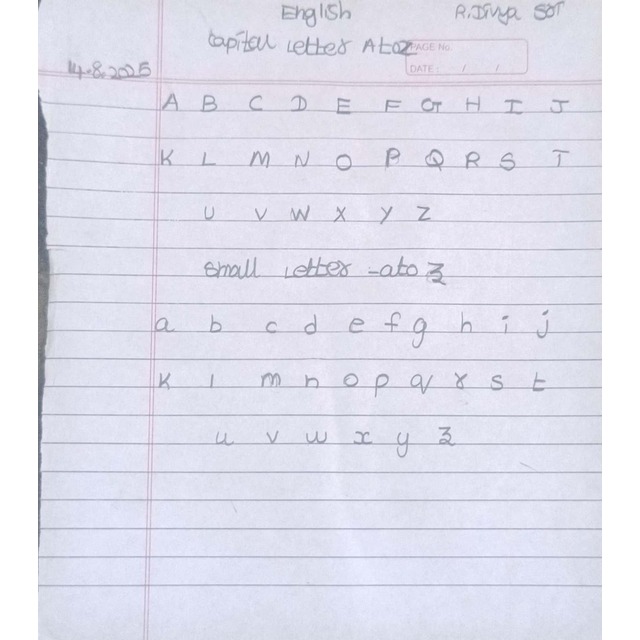 English R.Divya SGT
Capital Letter A to Z
PAGE No.
DATE: / /
14.8.2025
A B C D E F G H I J
K L M N O P Q R S T
U V W X Y Z
Small Letter - a to z
a b c d e f g h i j
k l m n o p q r s t
u v w x y z